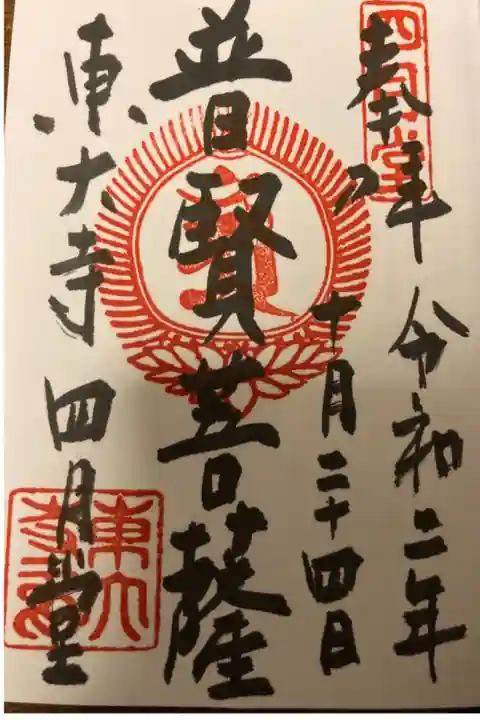 奉拝
四月堂
令和二年
十月二十四日
普賢菩薩
東大寺 四月堂